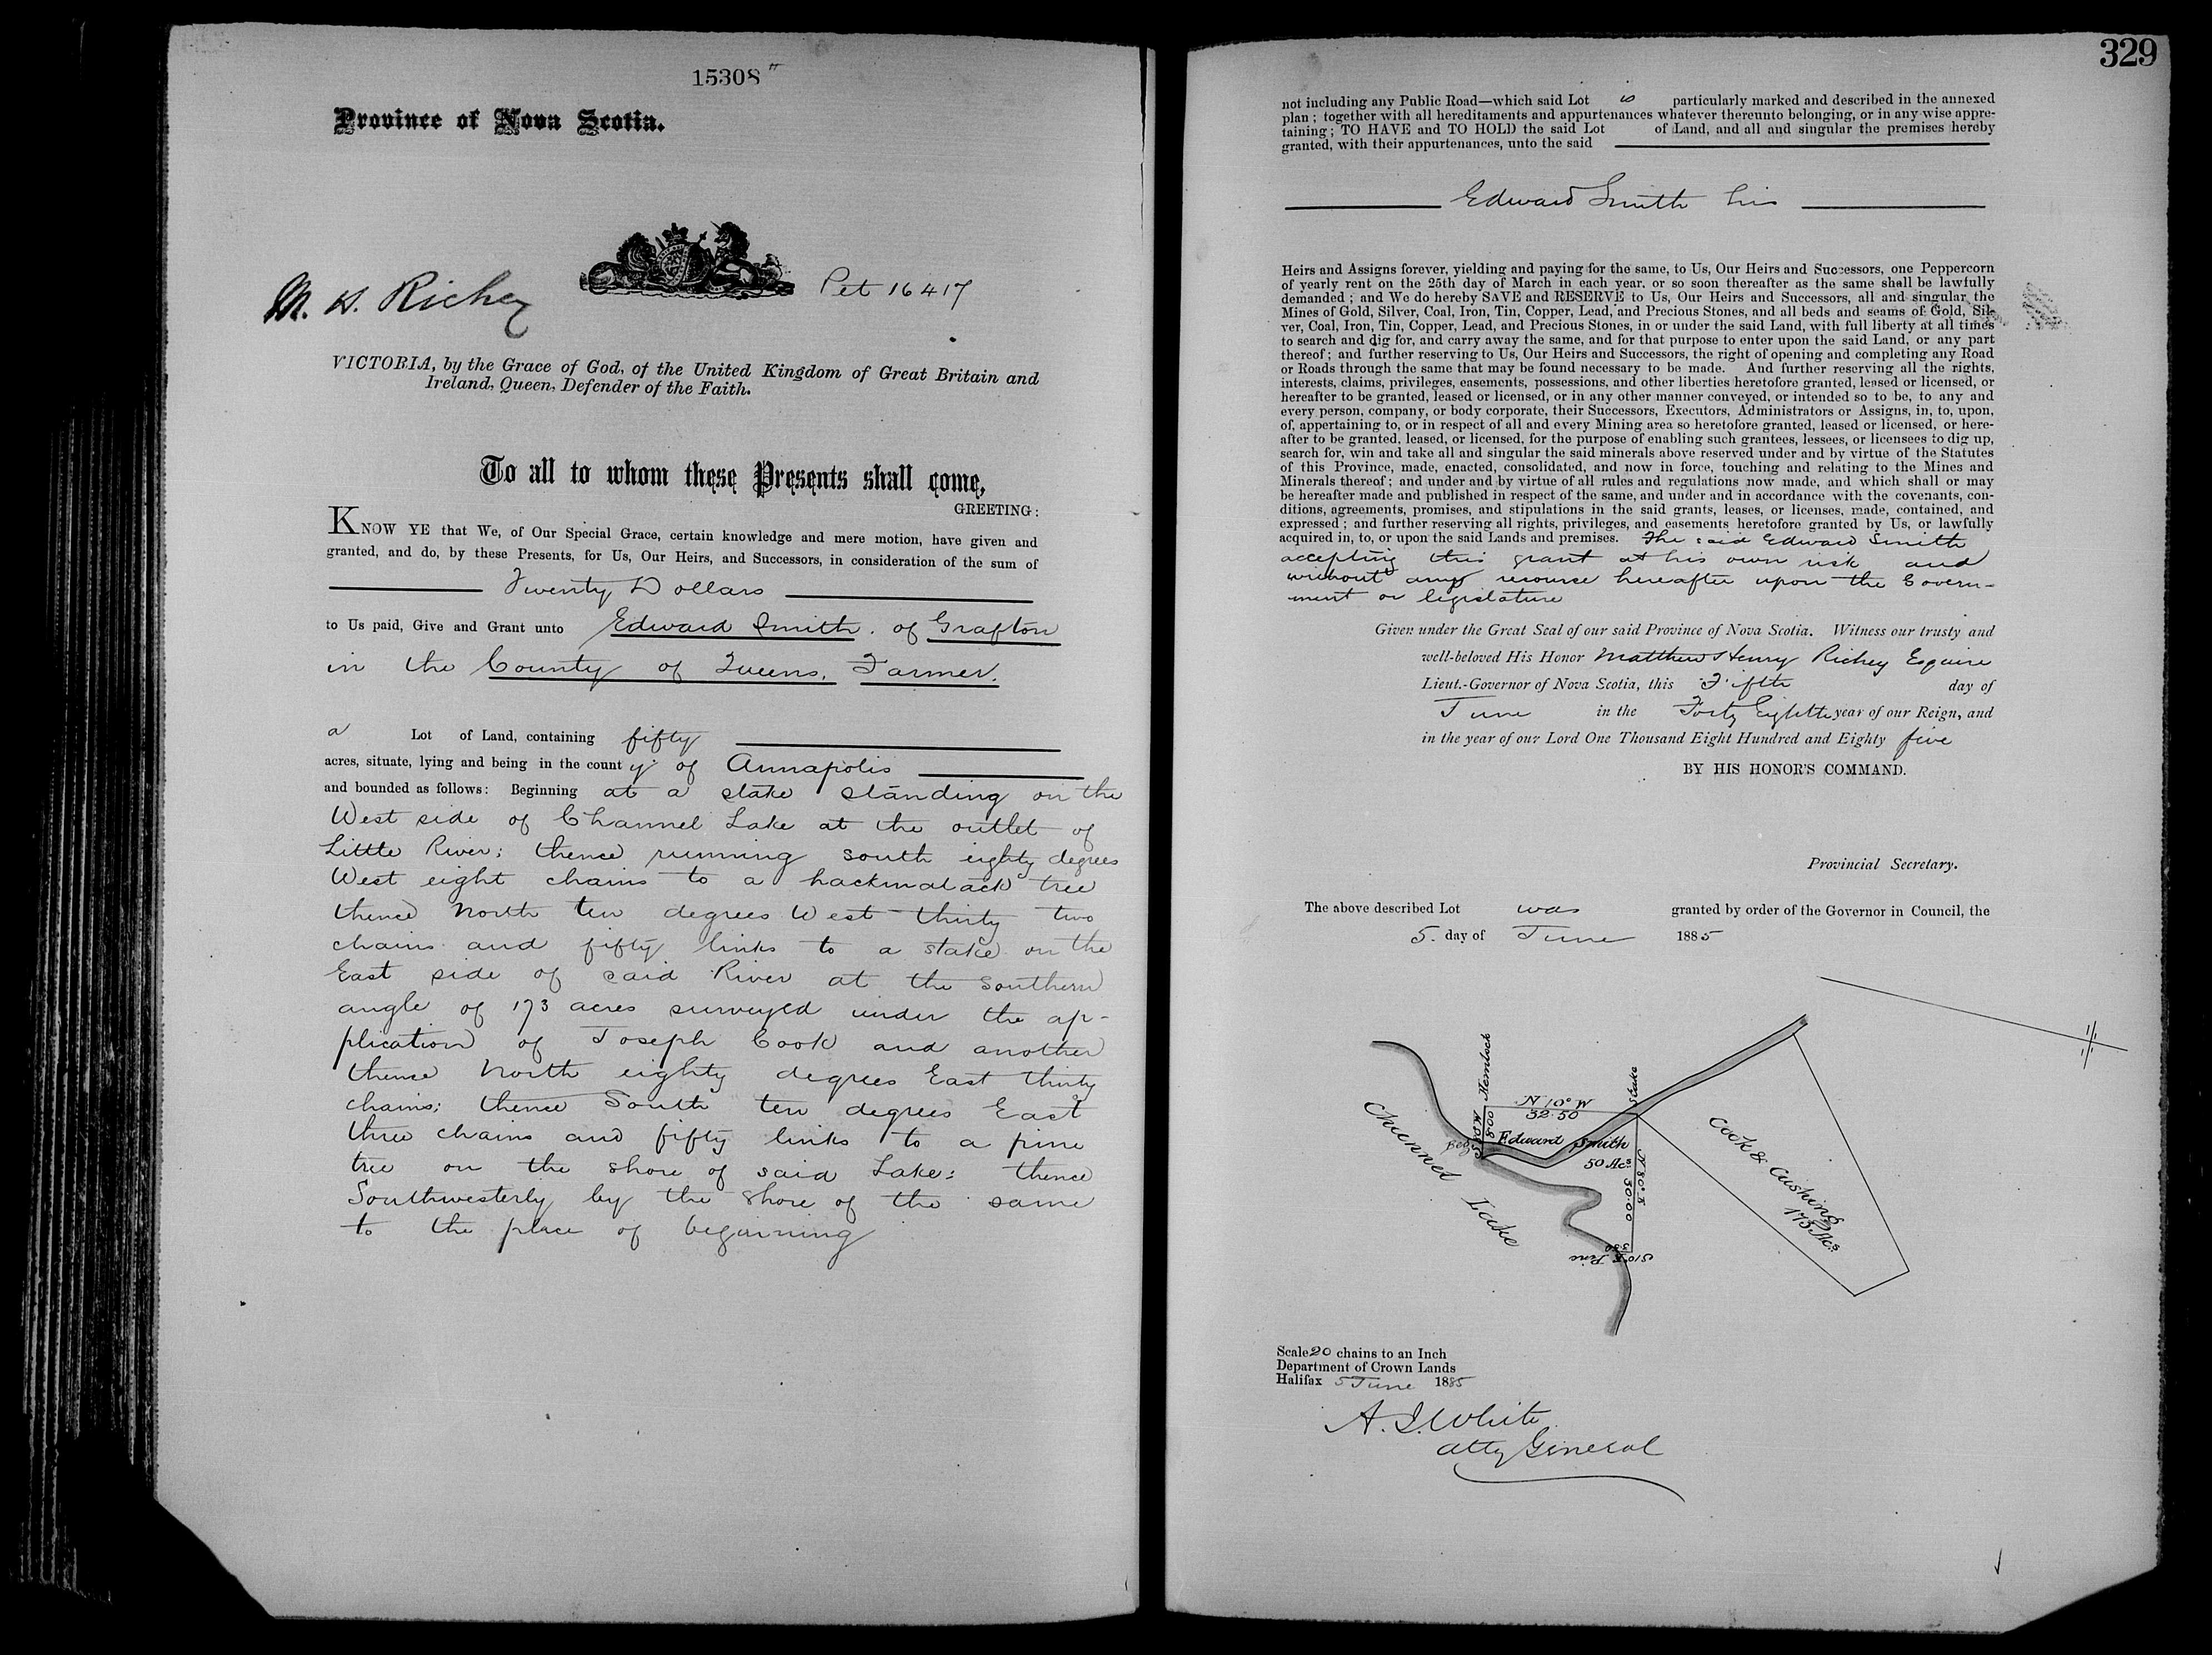 15308"
Province of Nova Scotia.
M. H. Richey
Pet 16417
VICTORIA, by the Grace of God, of the United Kingdom of Great Britain and
Ireland, Queen, Defender of the Faith.
To all to whom these Presents shall come,
GREETING:
KNOW YE that We, of Our Special Grace, certain knowledge and mere motion, have given and
granted, and do, by these Presents, for Us, Our Heirs, and Successors, in consideration of the sum of
Twenty Dollars
to Us paid, Give and Grant unto Edward Smith. of Grafton
in the County of Queens, Farmer.
a Lot of Land, containing fifty
acres, situate, lying and being in the county of Annapolis
and bounded as follows: Beginning at a stake standing on the
West side of Channel Lake at the outlet of
Little River; thence running south eighty degrees
West eight chains to a hackmatack tree
thence North ten degrees West thirty two
chains and fifty links to a stake on the
East side of said River at the Southern
angle of 173 acres surveyed under the ap-
plication of Joseph Cook and another
thence North eighty degrees East thirty
chains; thence South ten degrees East
three chains and fifty links to a pine
tree on the shore of said Lake; thence
Southwesterly by the shore of the same
to the place of beginning
329
not including any Public Road—which said Lot is particularly marked and described in the annexed
plan; together with all hereditaments and appurtenances whatever thereunto belonging, or in any wise apper-
taining; TO HAVE and TO HOLD the said Lot of Land, and all and singular the premises hereby
granted, with their appurtenances, unto the said
Edward Smith his
Heirs and Assigns forever, yielding and paying for the same, to Us, Our Heirs and Successors, one Peppercorn
of yearly rent on the 25th day of March in each year, or so soon thereafter as the same shall be lawfully
demanded; and We do hereby SAVE and RESERVE to Us, Our Heirs and Successors, all and singular the
Mines of Gold, Silver, Coal, Iron, Tin, Copper, Lead, and Precious Stones, and all beds and seams of Gold, Sil-
ver, Coal, Iron, Tin, Copper, Lead, and Precious Stones, in or under the said Land, with full liberty at all times
to search and dig for, and carry away the same, and for that purpose to enter upon the said Land, or any part
thereof; and further reserving to Us, Our Heirs and Successors, the right of opening and completing any Road
or Roads through the same that may be found necessary to be made. And further reserving all the rights,
interests, claims, privileges, easements, possessions, and other liberties heretofore granted, leased or licensed, or
hereafter to be granted, leased or licensed, or in any other manner conveyed, or intended so to be, to any and
every person, company, or body corporate, their Successors, Executors, Administrators or Assigns, in, to, upon,
of, appertaining to, or in respect of all and every Mining area so heretofore granted, leased or licensed, or here-
after to be granted, leased, or licensed, for the purpose of enabling such grantees, lessees, or licensees to dig up,
search for, win and take all and singular the said minerals above reserved under and by virtue of the Statutes
of this Province, made, enacted, consolidated, and now in force, touching and relating to the Mines and
Minerals thereof; and under and by virtue of all rules and regulations now made, and which shall or may
be hereafter made and published in respect of the same, and under and in accordance with the covenants, con-
ditions, agreements, promises, and stipulations in the said grants, leases, or licenses, made, contained, and
expressed; and further reserving all rights, privileges, and easements heretofore granted by Us, or lawfully
acquired in, to, or upon the said Lands and premises. The said Edward Smith
accepting this grant at his own risk and
without any recourse hereafter upon the Govern-
ment or legislature
Given under the Great Seal of our said Province of Nova Scotia. Witness our trusty and
well-beloved His Honor Matthew Henry Richey Esquire
Lieut.-Governor of Nova Scotia, this Fifth day of
June in the Forty Eighth year of our Reign, and
in the year of our Lord One Thousand Eight Hundred and Eighty five
BY HIS HONOR'S COMMAND.
Provincial Secretary.
The above described Lot was granted by order of the Governor in Council, the
5. day of June 1885
Hemlock
Stake
N 10° W
32.50
S 80 W
8 00
Beg.
Edward Smith
50 Acs
N 80° E
30.00
S 10° E
3 50
Pine
Channel Lake
Cook & Cushing
173 Acs
Scale 20 chains to an Inch
Department of Crown Lands
Halifax 5 June 1885
A. J. White
Atty General